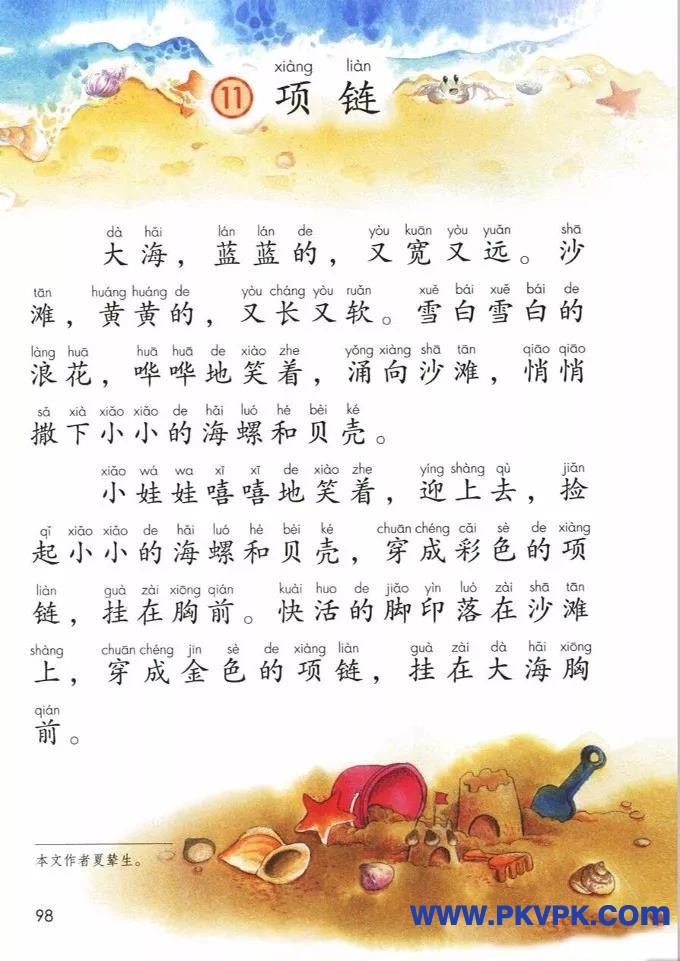 xiàng liàn
11 项链
dà hǎi lán lán de yòu kuān yòu yuǎn shā
大海，蓝蓝的，又宽又远。沙
tān huáng huáng de yòu cháng yòu ruǎn xuě bái xuě bái de
滩，黄黄的，又长又软。雪白雪白的
làng huā huā huā de xiào zhe yǒng xiàng shā tān qiāo qiāo
浪花，哗哗地笑着，涌向沙滩，悄悄
sǎ xià xiǎo xiǎo de hǎi luó hé bèi ké
撒下小小的海螺和贝壳。
xiǎo wá wa xī xī de xiào zhe yíng shàng qù jiǎn
小娃娃嘻嘻地笑着，迎上去，捡
qǐ xiǎo xiǎo de hǎi luó hé bèi ké chuān chéng cǎi sè de xiàng
起小小的海螺和贝壳，穿成彩色的项
liàn guà zài xiōng qián kuài huo de jiǎo yìn luò zài shā tān
链，挂在胸前。快活的脚印落在沙滩
shàng chuān chéng jīn sè de xiàng liàn guà zài dà hǎi xiōng
上，穿成金色的项链，挂在大海胸
qián
前。
本文作者夏辇生。
98
www.PKVPK.com